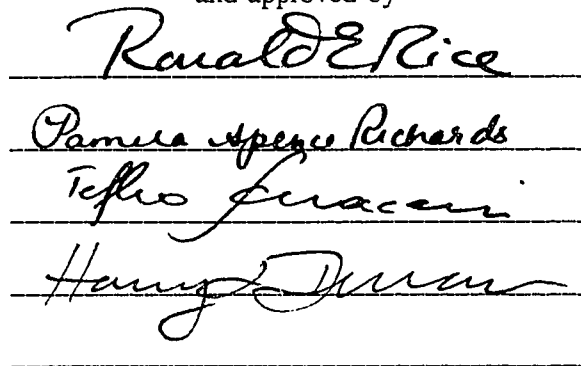 and approved by
Ronald E Rice
Pamela Spence Richards
Tefko
Harry